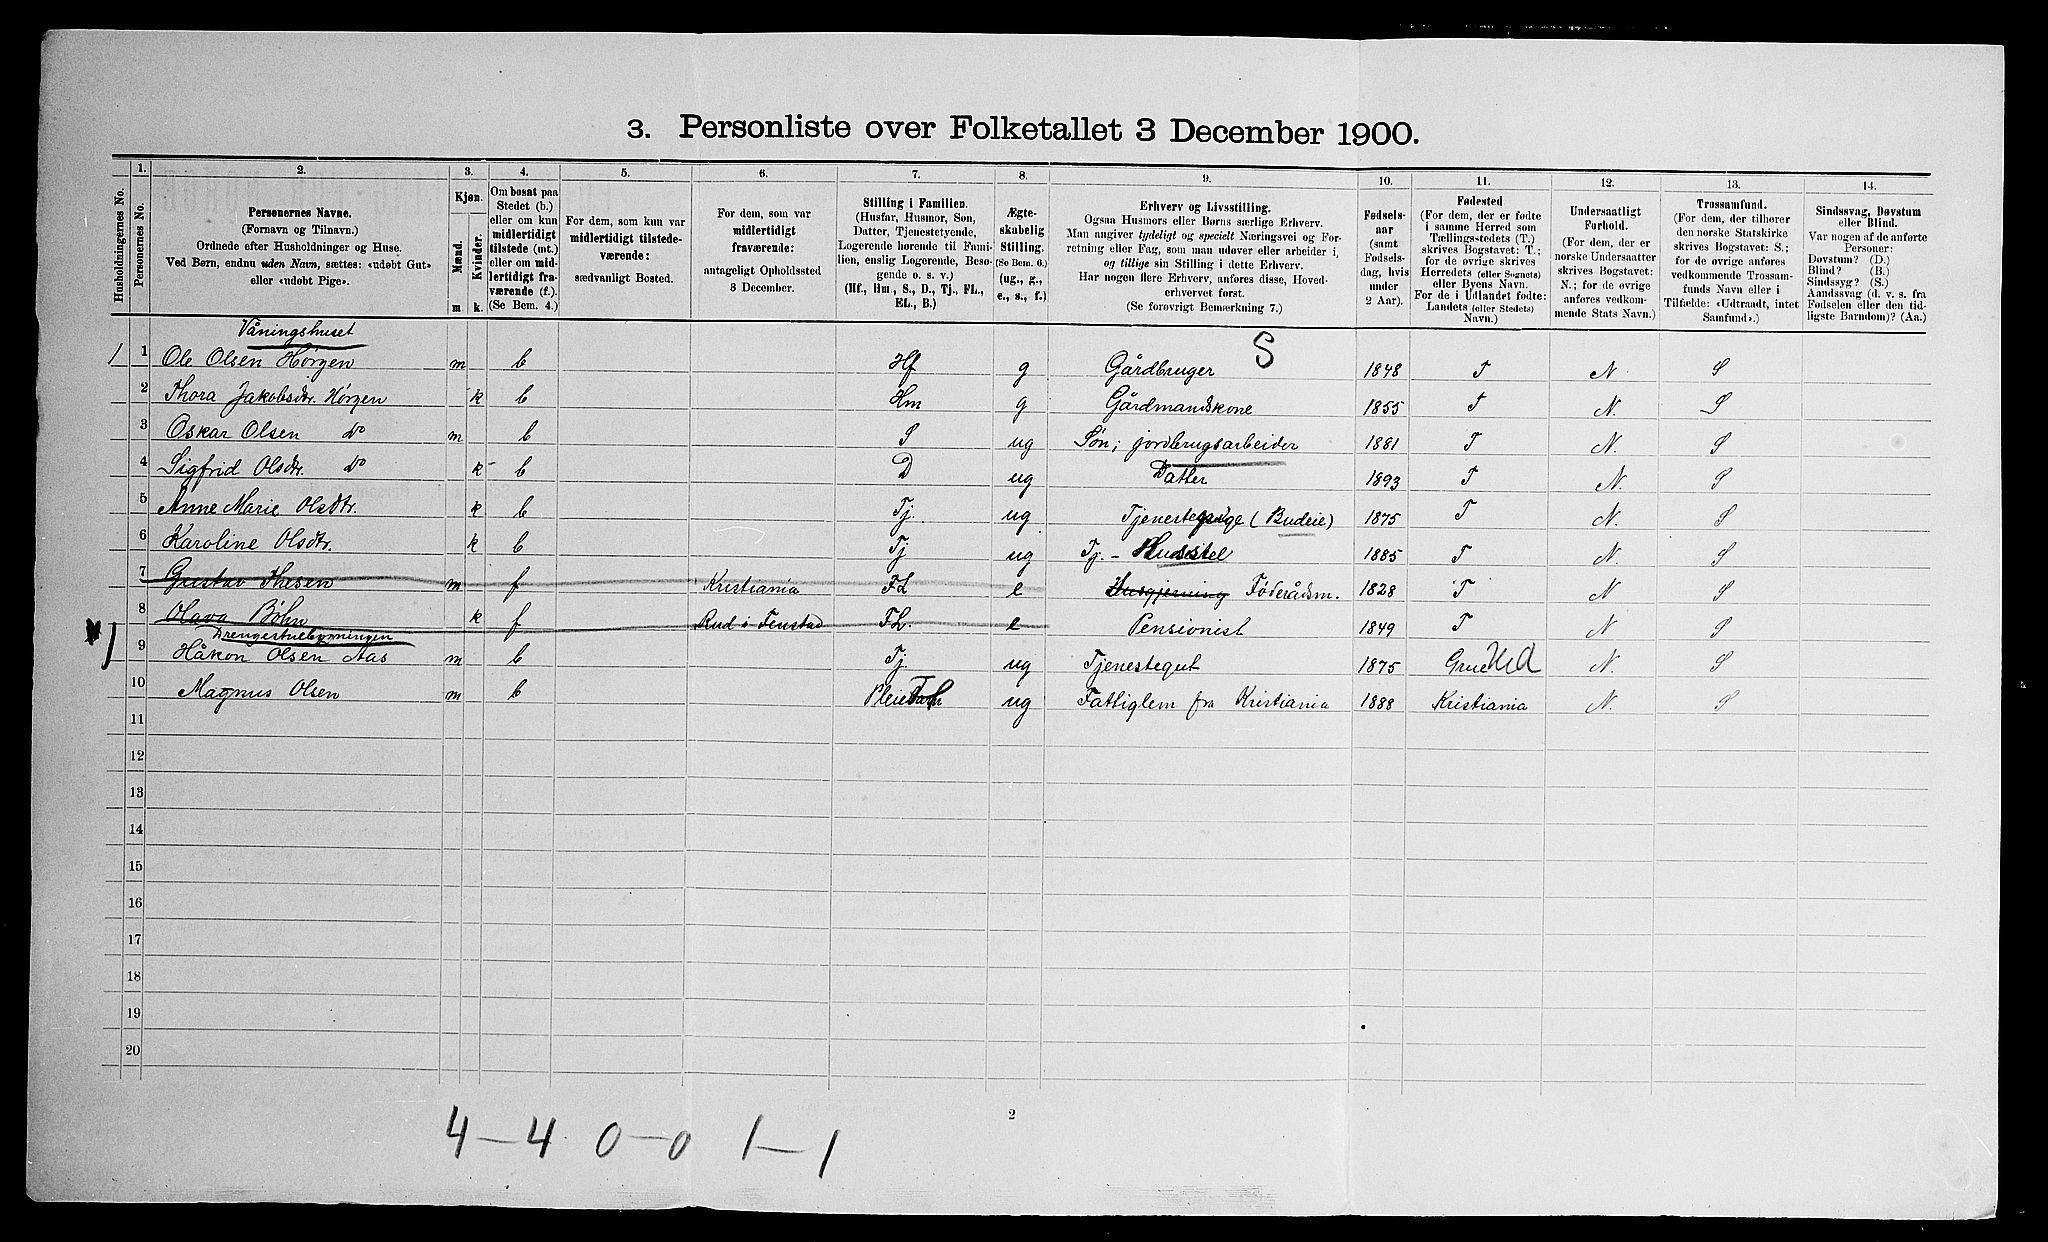 3. Personliste over Folketallet 3 December 1900.
1. 2. 3. 4. 5. 6. 7. 8. 9. 10. 11. 12. 13. 14.
Husholdningernes No.
Personernes No.
Personernes Navne.
(Fornavn og Tilnavn.)
Ordnede efter Husholdninger og Huse.
Ved Børn, endnu uden Navn, sættes: «udøbt Gut»
eller «udøbt Pige».
Kjøn.
Mænd.
Kvinder.
m k.
Om bosat paa
Stedet (b.)
eller om kun
midlertidigt
tilstede (mt.)
eller om mid-
lertidigt fra-
værende (f.).
(Se Bem. 4.)
For dem, som kun var
midlertidigt tilstede-
værende:
sædvanligt Bosted.
For dem, som var
midlertidigt
fraværende:
antageligt Opholdssted
3 December.
Stilling i Familien.
(Husfar, Husmor, Søn,
Datter, Tjenestetyende,
Logerende hørende til Fami-
lien, enslig Logerende, Besø-
gende o. s. v.)
(Hf., Hm., S., D., Tj., FL.,
EL., B.)
Ægte-
skabelig
Stilling.
(Se Bem. 6.)
(ug., g.,
e., s., f.)
Erhverv og Livsstilling.
Ogsaa Husmors eller Børns særlige Erhverv.
Man angiver tydeligt og specielt Næringsvei og For-
retning eller Fag, som man udøver eller arbeider i,
og tillige sin Stilling i dette Erhverv.
Har nogen flere Erhverv, anføres disse, Hoved-
erhvervet først.
(Se forøvrigt Bemærkning 7.)
Fødsels-
aar
(samt
Fødsels-
dag, hvis
under
2 Aar).
Fødested
(For dem, der er fødte
i samme Herred som
Tællingsstedets (T.)
skrives Bogstavet: T.;
for de øvrige skrives
Herredets (eller Sognets)
eller Byens Navn.
For de i Udlandet fødte:
Landets (eller Stedets)
Navn.)
Undersaatligt
Forhold.
(For dem, der er
norske Undersaatter
skrives Bogstavet:
N.; for de øvrige
anføres vedkom-
mende Stats Navn.)
Trossamfund.
(For dem, der tilhører
den norske Statskirke
skrives Bogstavet: S.;
for de øvrige anføres
vedkommende Trossam-
funds Navn eller i
Tilfælde: «Udtraadt, intet
Samfund».)
Sindssvag, Døvstum
eller Blind.
Var nogen af de anførte
Personer:
Døvstum? (D.)
Blind? (B.)
Sindssyg? (S.)
Aandssvag (d. v. s. fra
Fødselen eller den tid-
ligste Barndom)? (Aa.)
Våningshuset S
1 1 Ole Olsen Hørgen m b Hf g Gårdbruger 1848 T N S
2 Thora Jakobsdtr. Hørgen k b Hm g Gårdmandskone 1855 T N. S
3 Oskar Olsen Do m b S ug Søn; jordbrugsarbeider 1881 T N. S
4 Sigfrid Olsdtr. Do k b D ug Datter 1893 T N. S
5 Anne Marie Olsdtr. k b Tj. ug Tjenestepige (Budeie) 1875 T N. S
6 Karoline Olsdtr. k b Tj ug Tj. - Husstel 1885 T N. S
7 Gustav Thesen m f Kristiania FL e Husgjerning Føderådsm. 1828 T N S
8 Olava Bøhn k f Rud i Fenstad FL. e Pensionist 1849 T N S
Drengestuebygningen
1 9 Håkon Olsen Aas m b Tj. ug Tjenestegut 1875 Grue Hed N. S
10 Magnus Olsen m b Pleie ug Fattiglem fra Kristiania 1888 Kristiania N. S
11
12
13
14
15
16
17
18
19
20
2
4-4 0-0 1-1